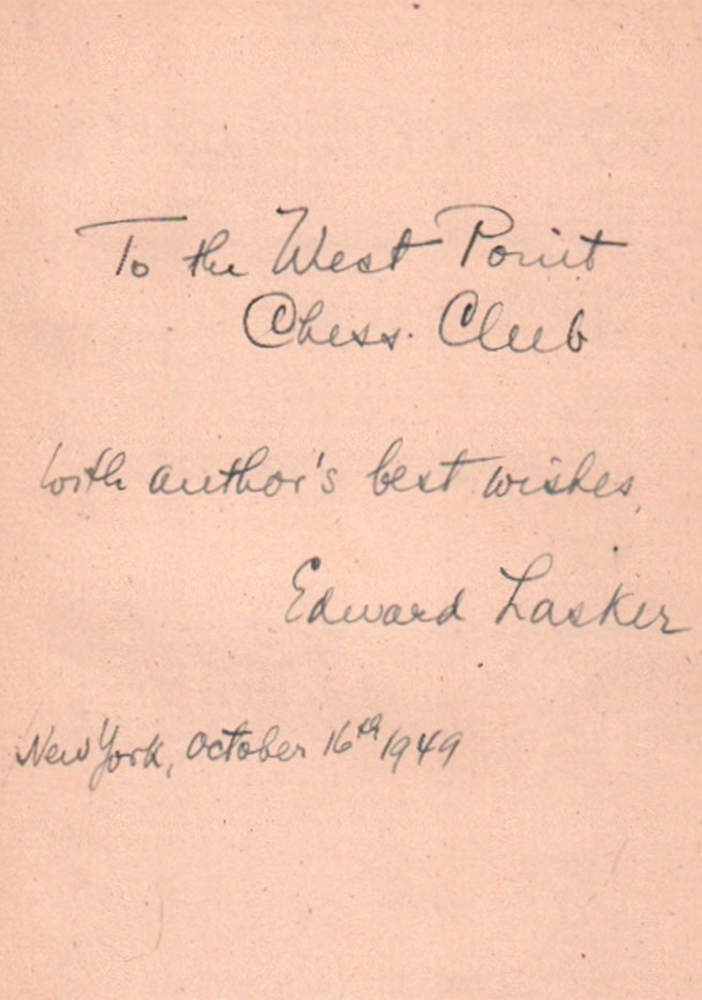 To the West Point
Chess Club
with author's best wishes,
Edward Lasker
New York, October 16th 1949